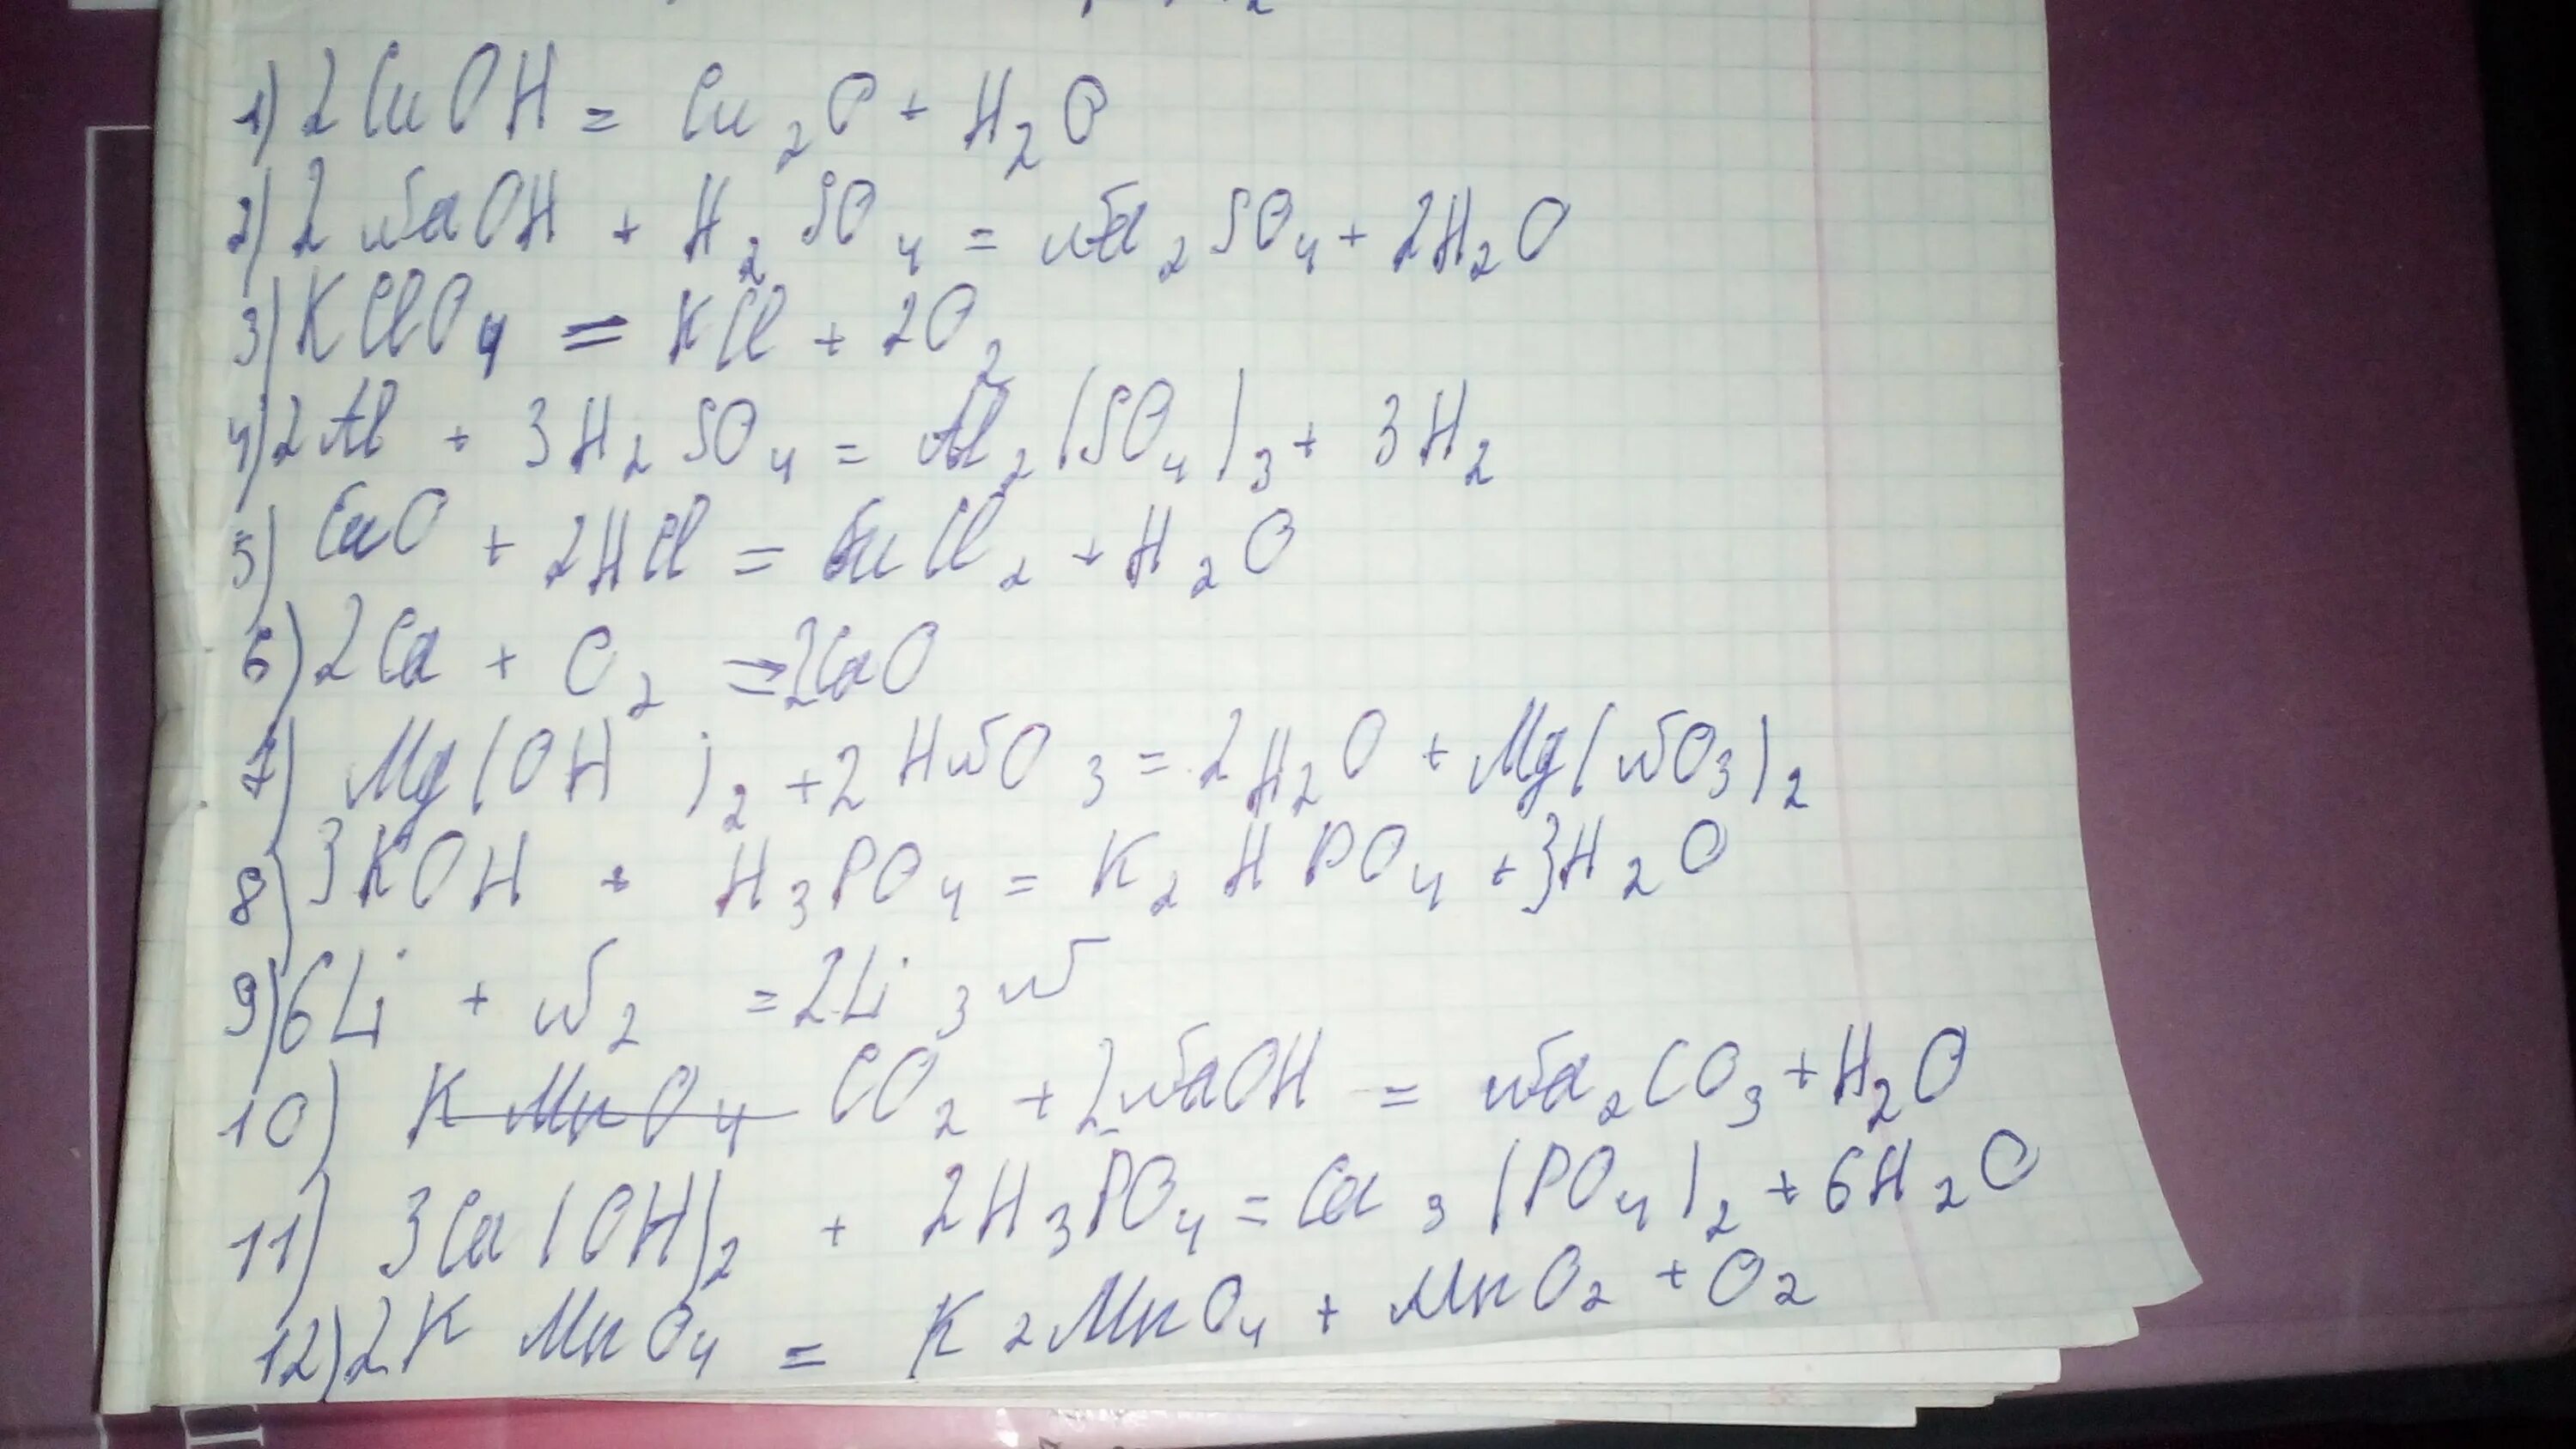 1) 2CuOH = Cu2O + H2O
2) 2NaOH + H2SO4 = Na2SO4 + 2H2O
3) KClO4 = KCl + 2O2
4) 2Al + 3H2SO4 = Al2(SO4)3 + 3H2
5) CuO + 2HCl = CuCl2 + H2O
6) 2Ca + O2 = 2CaO
7) Mg(OH)2 + 2HNO3 = 2H2O + Mg(NO3)2
8) 3KOH + H3PO4 = K2HPO4 + 3H2O
9) 6Li + N2 = 2Li3N
10) KMnO4 CO2 + 2NaOH = Na2CO3 + H2O
11) 3Ca(OH)2 + 2H3PO4 = Ca3(PO4)2 + 6H2O
12) 2KMnO4 = K2MnO4 + MnO2 + O2